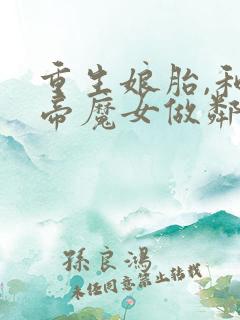 重生娘胎,和
帝魔女做鄰
孫良鴻
未经同意禁止转载